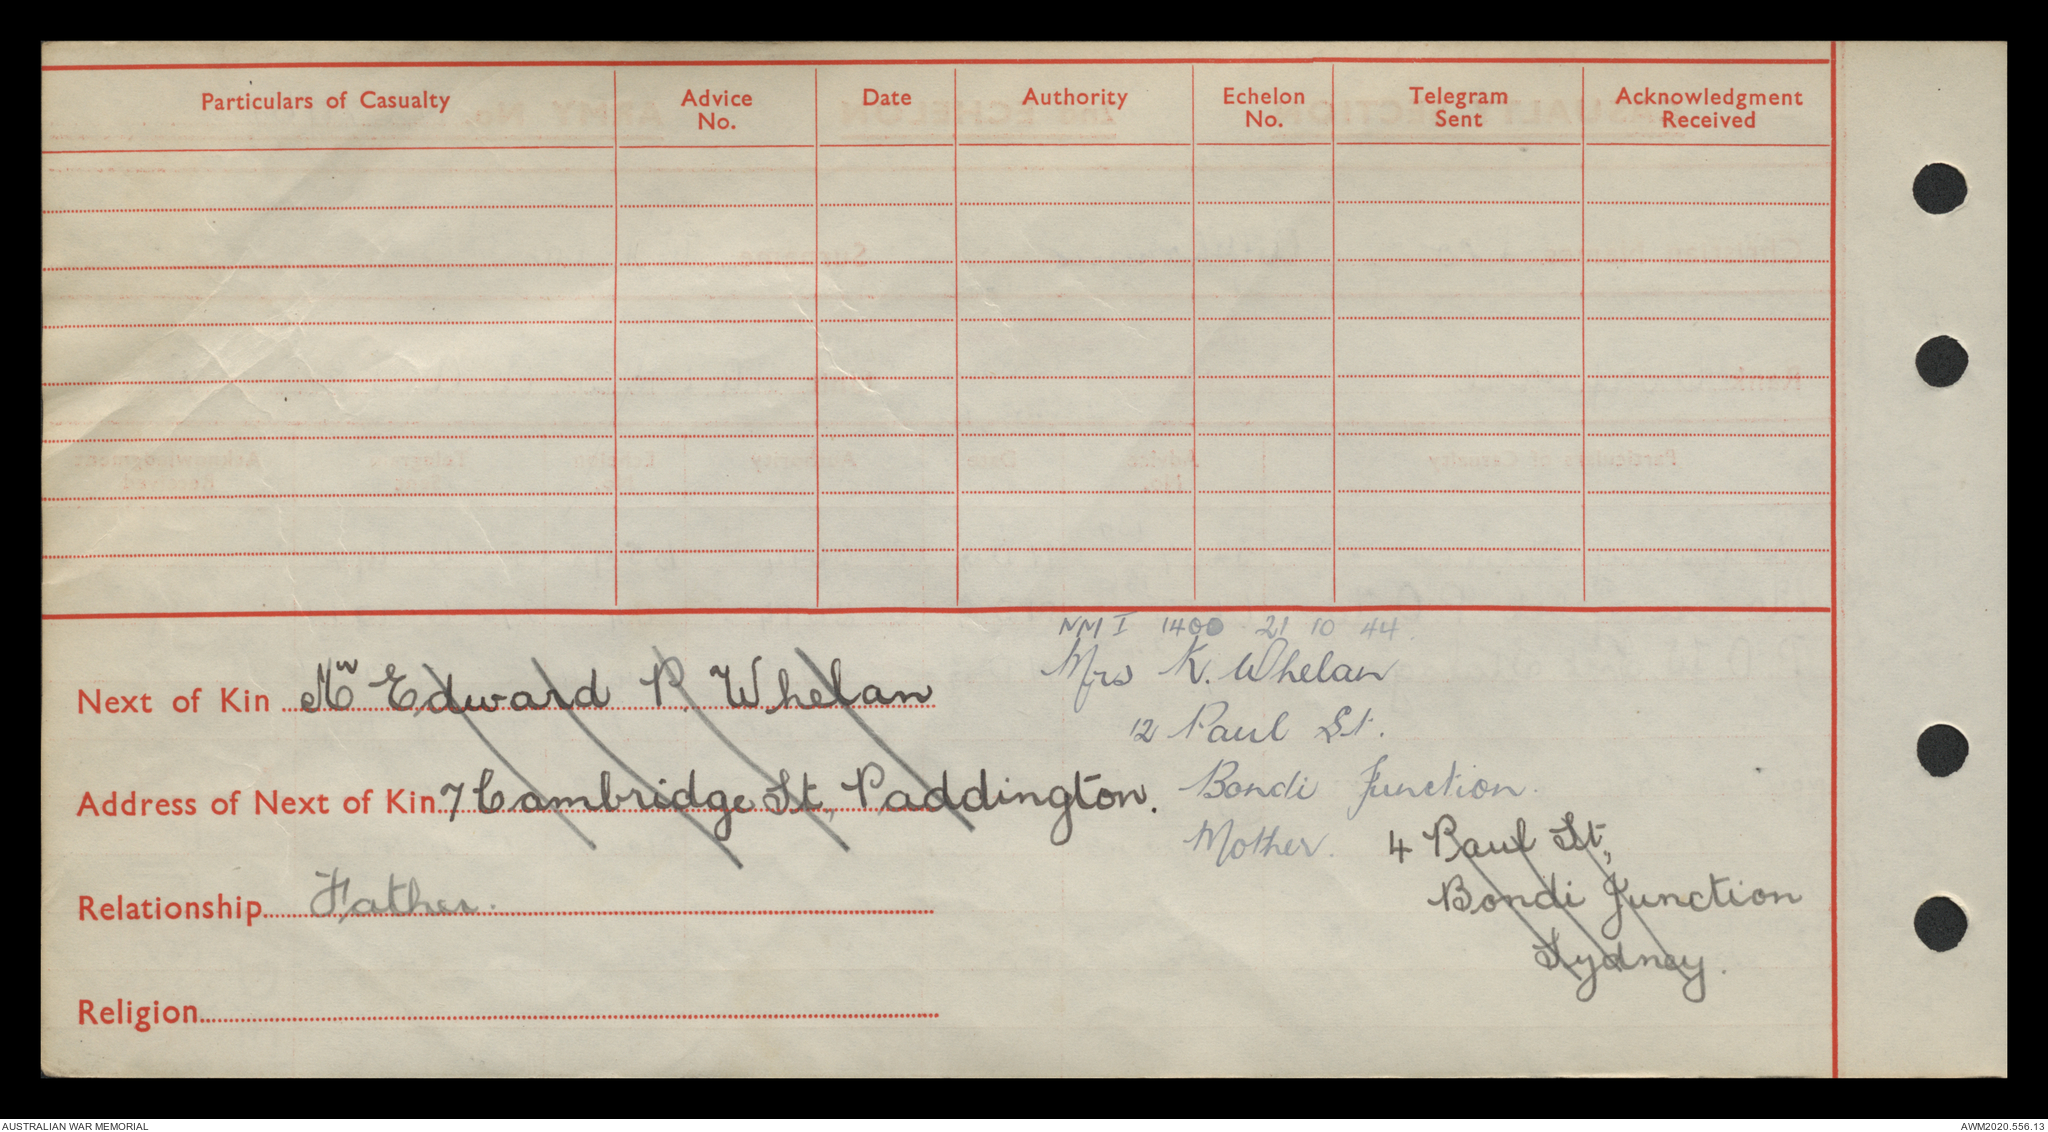 Particulars of Casualty Advice No. Date Authority Echelon No. Telegram Sent Acknowledgment Received
NM I 1400 21 10 44
Next of Kin Mr Edward P. Whelan
Mrs K. Whelan
12 Paul St.
Address of Next of Kin 7 Cambridge St, Paddington.
Bondi Junction.
Mother.
4 Paul St,
Bondi Junction
Sydney.
Relationship Father.
Religion
AUSTRALIAN WAR MEMORIAL
AWM2020.556.13